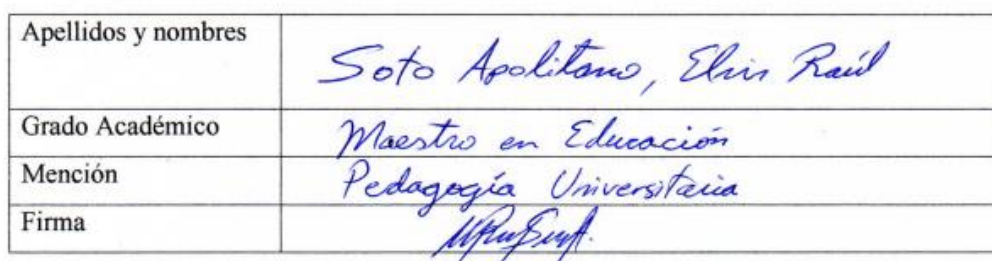 Apellidos y nombres
Soto Apolitano, Elvis Raúl
Grado Académico
Maestro en Educación
Mención
Pedagogía Universitaria
Firma